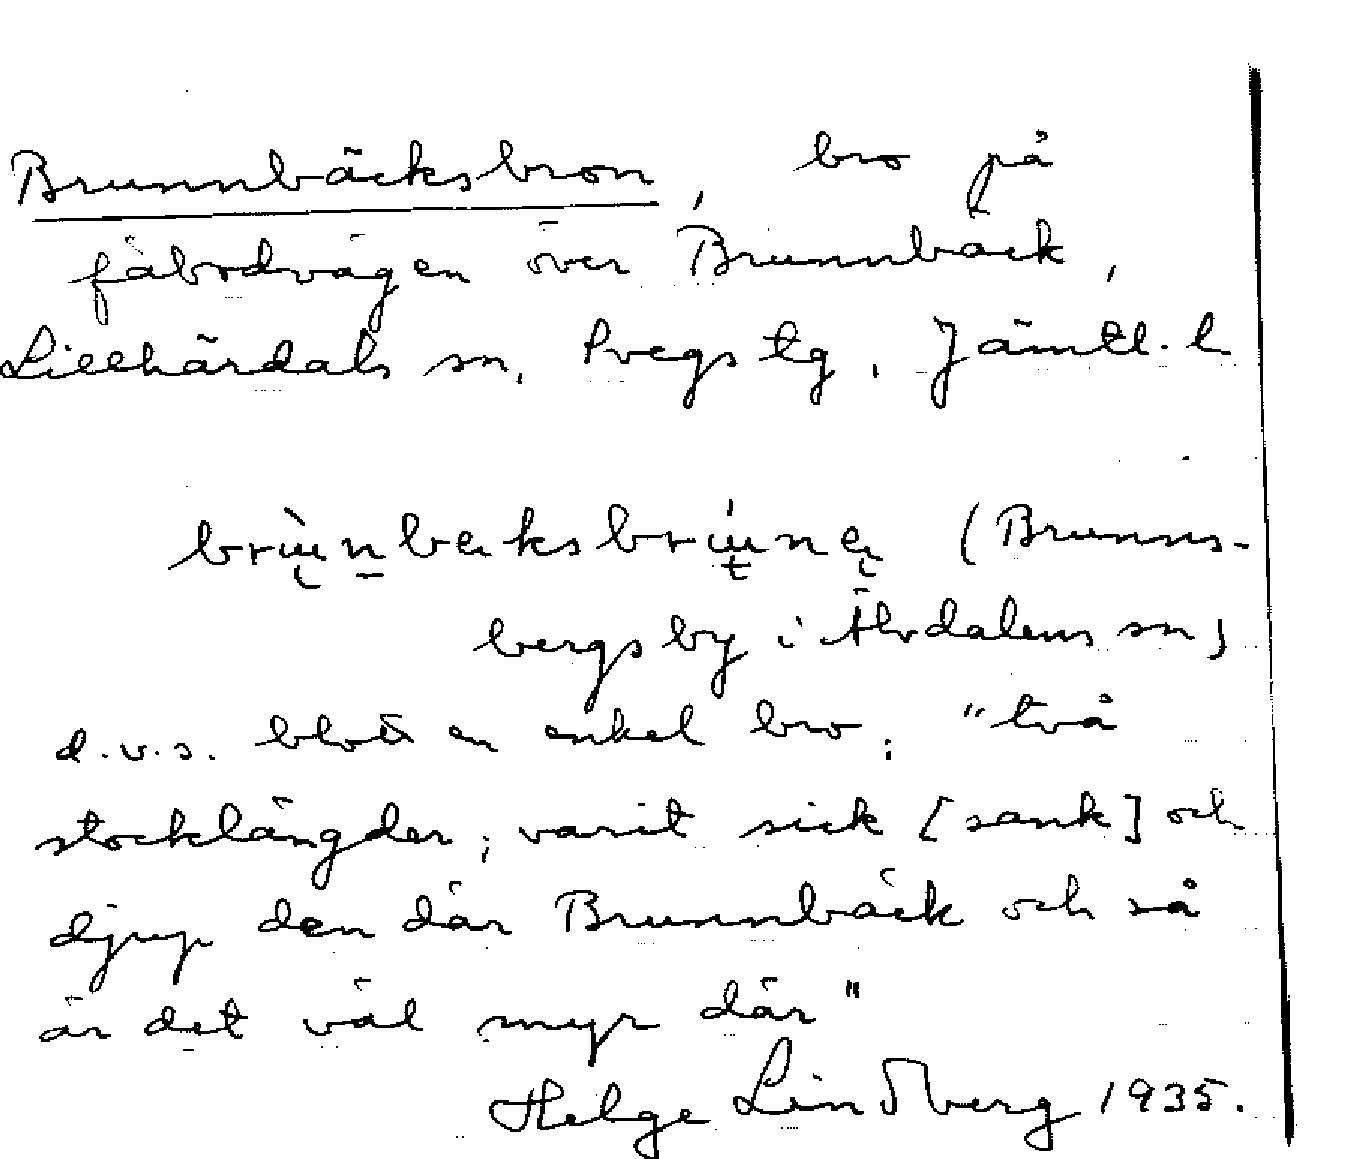 Brunnbäcksbron, bro på
fäbodvägen över Brunnbäck,
Lillhärdals sn, Svegs tg, Jämtl. l.
(Brunns-
bergsby i Älvdalens sn)
d.v.s. blott en enkel bro; "två
stocklängder; varit sick [sank] och
djup den där Brunnbäck och så
är det väl myr där"
Helge Lindberg 1935.